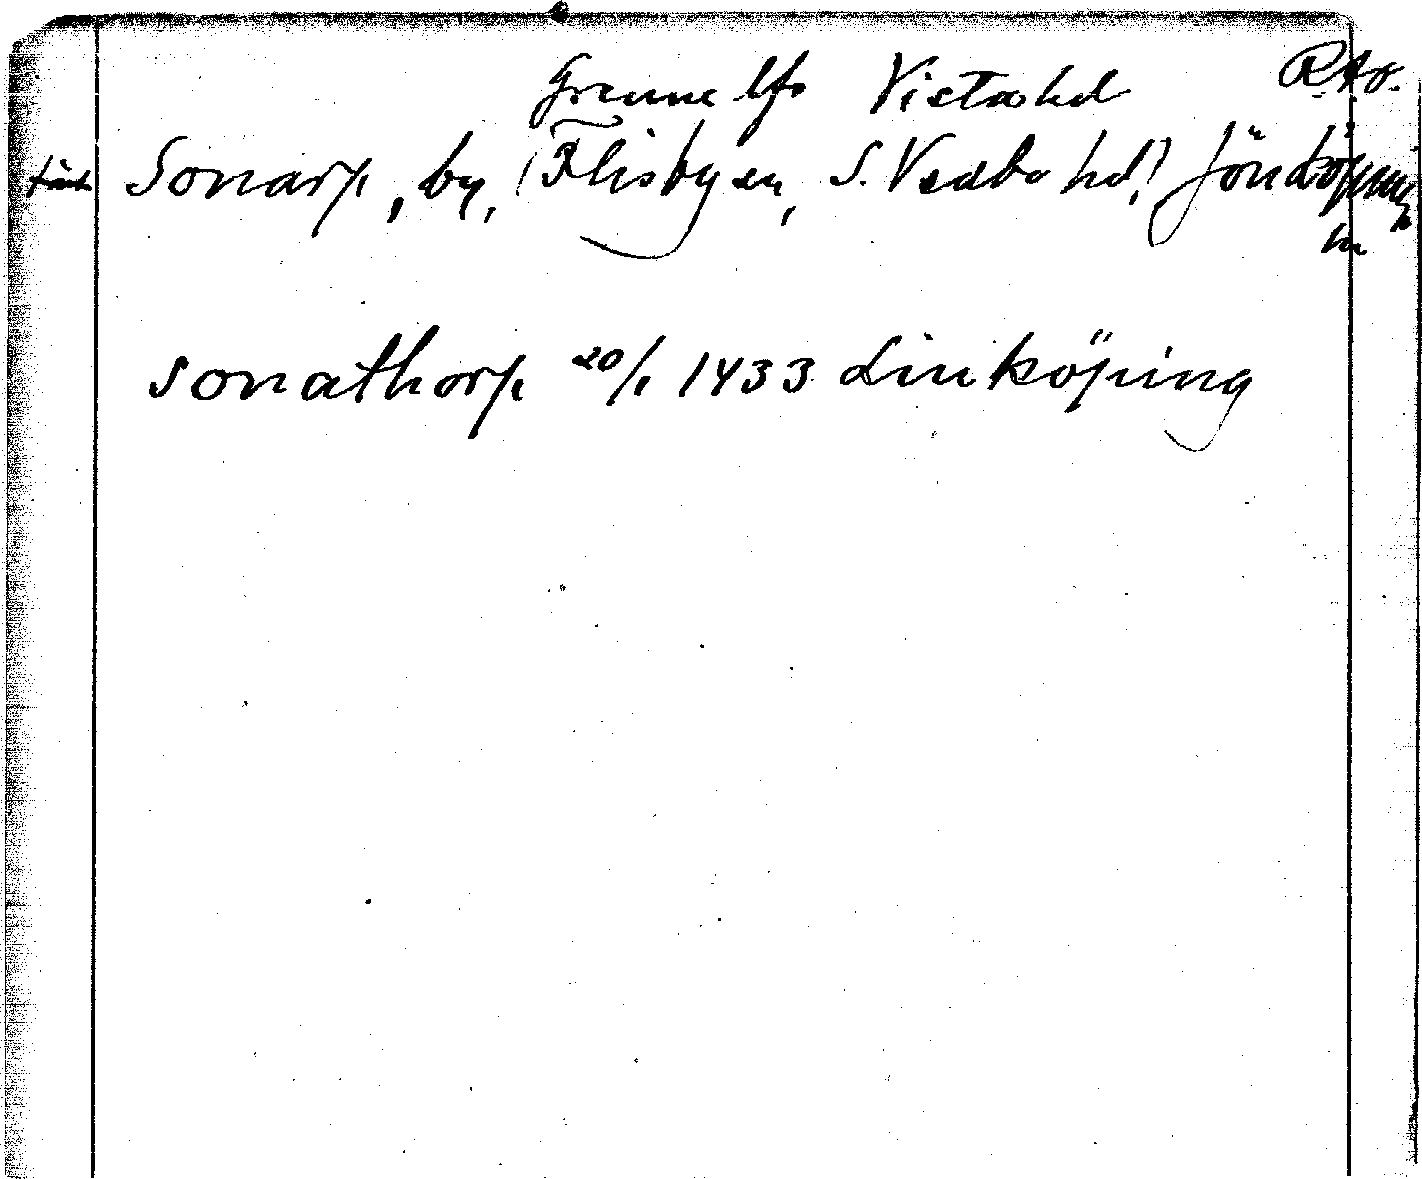 Grenna lfs Vista hd RAä.
Sonarp, by, (Flisby sn, S. Vedbo hd,) Jönköpings
ln
sonathorp 20/1 1433 Linköping